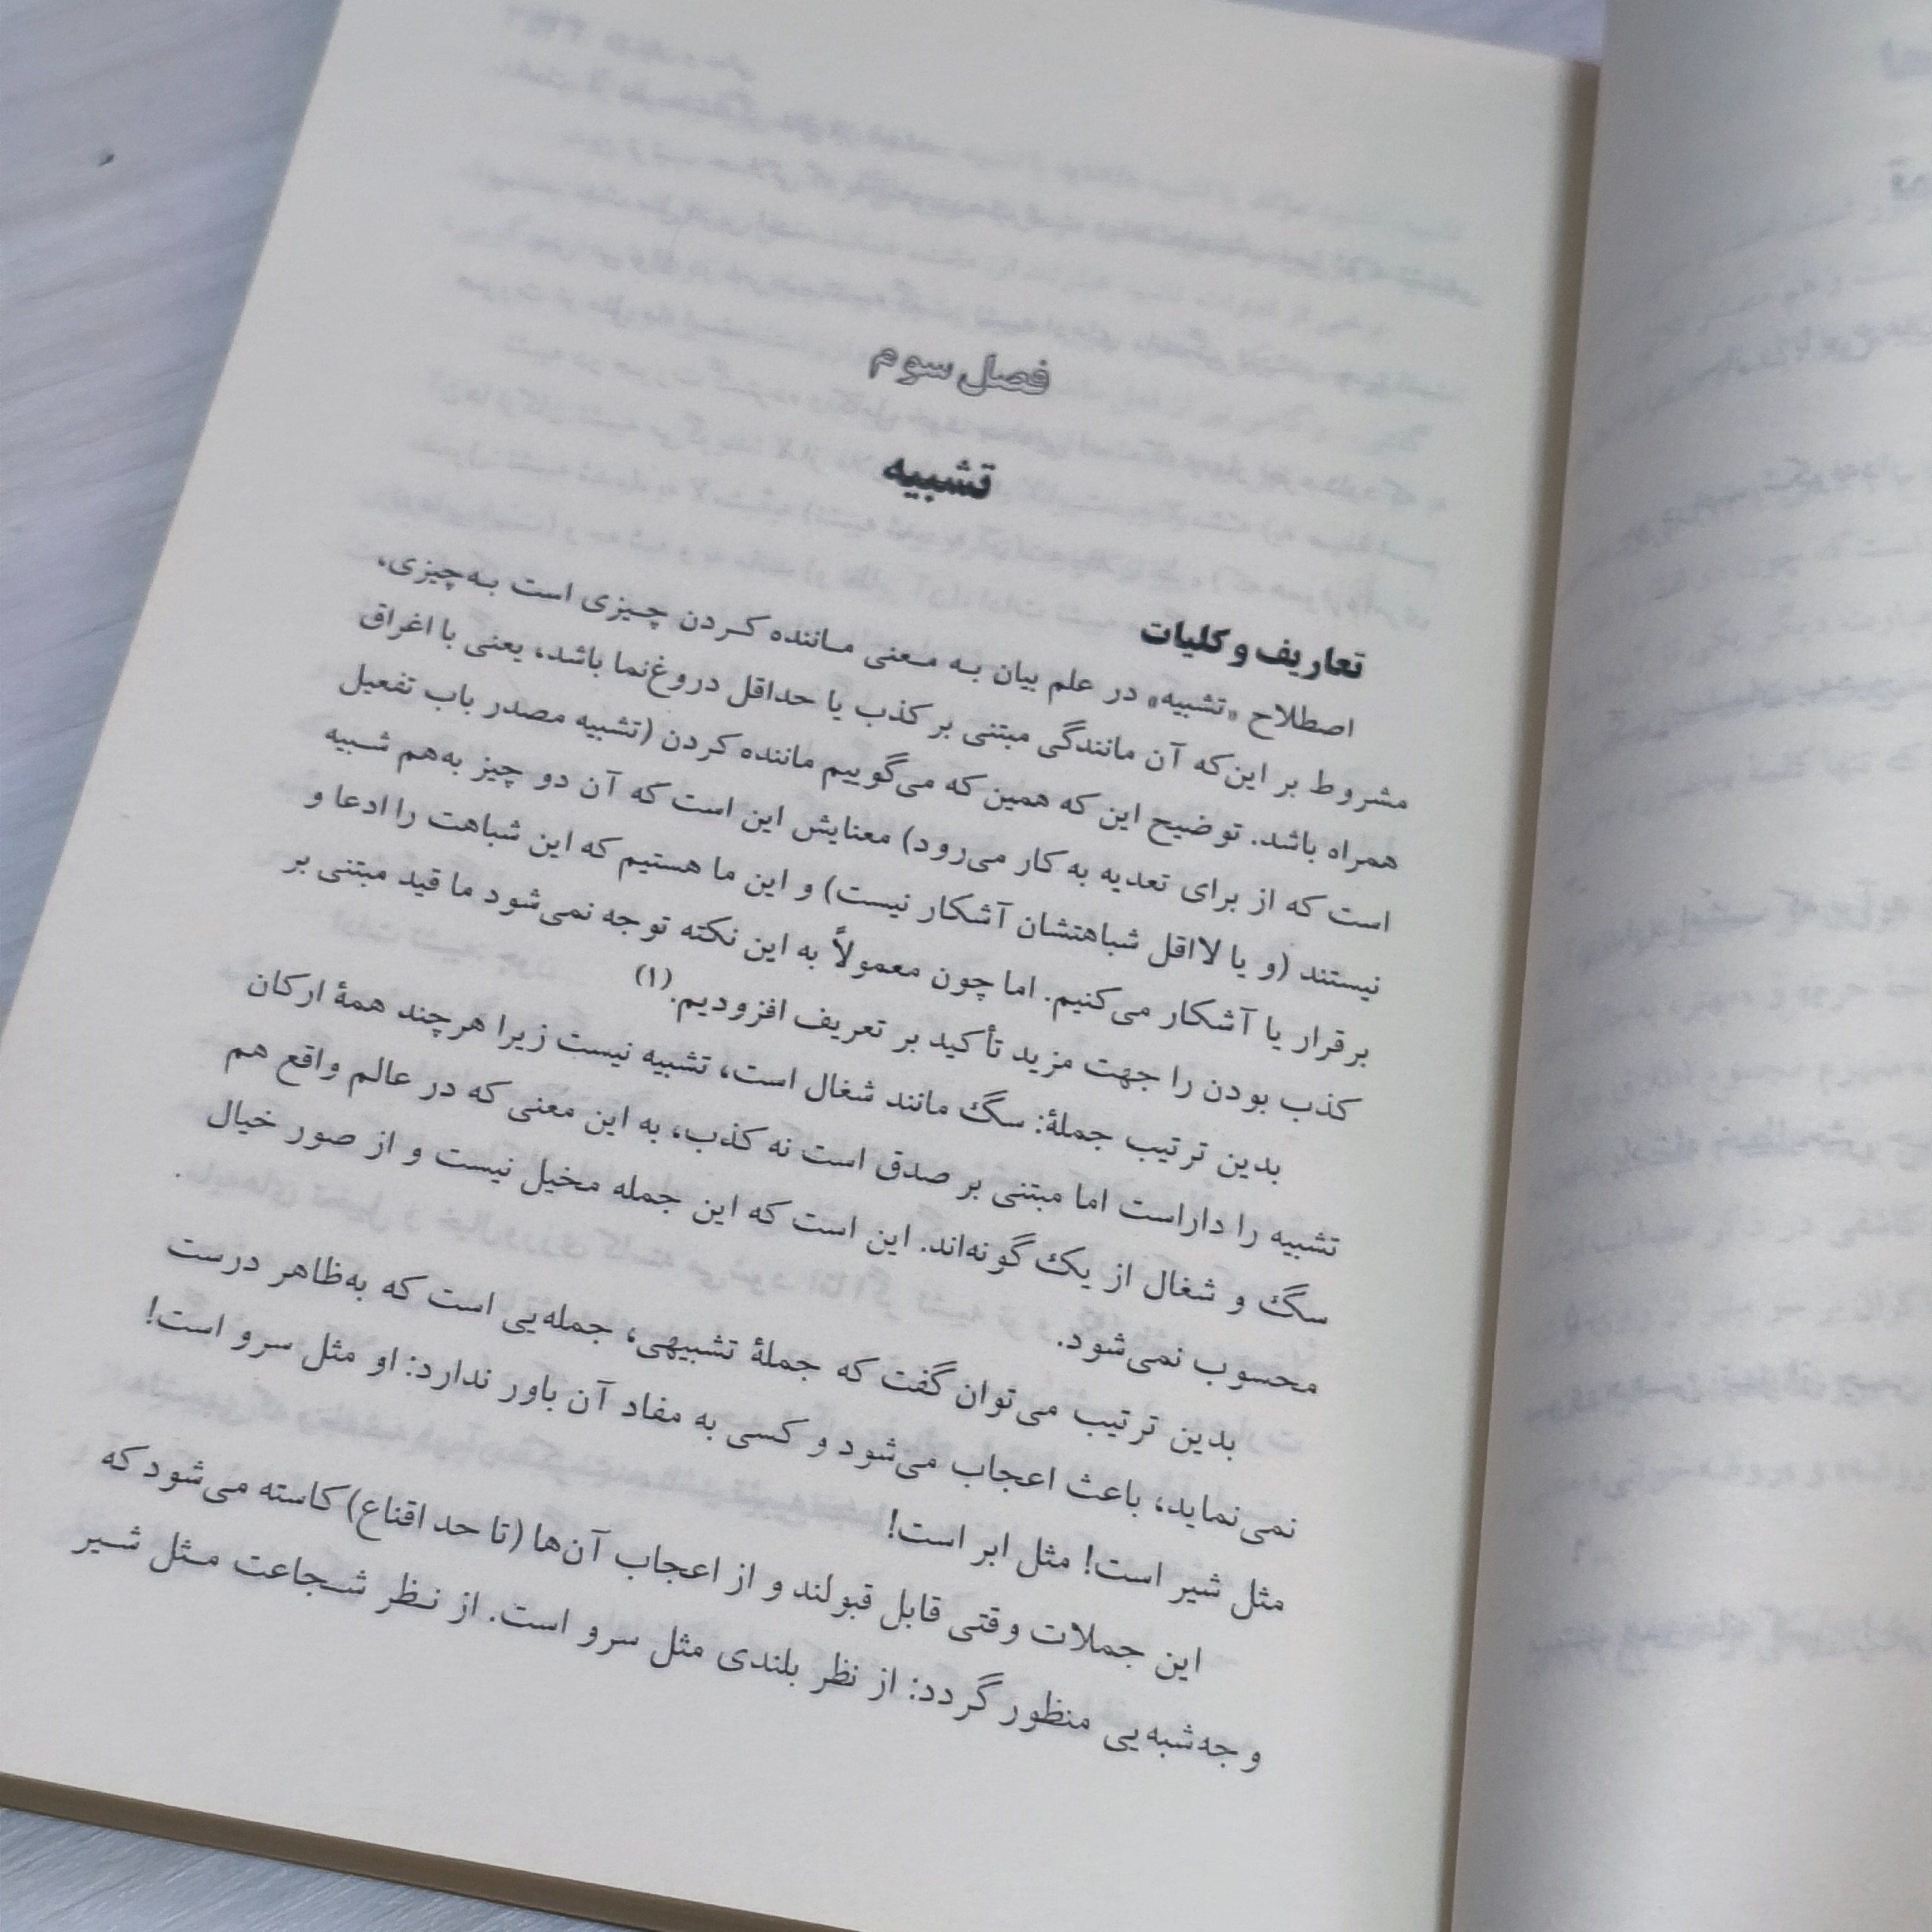 فصل سوم
تشبیه
تعاریف و کلیات
اصطلاح «تشبیه» در علم بیان به معنی ماننده کردن چیزی است به‌چیزی،
مشروط بر این‌که آن مانندگی مبتنی بر کذب یا حداقل دروغ‌نما باشد، یعنی با اغراق
همراه باشد. توضیح این که همین که می‌گوییم ماننده کردن (تشبیه مصدر باب تفعیل
است که از برای تعدیه به کار می‌رود) معنایش این است که آن دو چیز به‌هم شبیه
نیستند (و یا لااقل شباهتشان آشکار نیست) و این ما هستیم که این شباهت را ادعا و
برقرار یا آشکار می‌کنیم. اما چون معمولاً به این نکته توجه نمی‌شود ما قید مبتنی بر
کذب بودن را جهت مزید تأکید بر تعریف افزودیم.(۱)
بدین ترتیب جملهٔ: سگ مانند شغال است، تشبیه نیست زیرا هرچند همهٔ ارکان
تشبیه را داراست اما مبتنی بر صدق است نه کذب، به این معنی که در عالم واقع هم
سگ و شغال از یک گونه‌اند. این است که این جمله مخیل نیست و از صور خیال
محسوب نمی‌شود.
بدین ترتیب می‌توان گفت که جملهٔ تشبیهی، جمله‌یی است که به‌ظاهر درست
نمی‌نماید، باعث اعجاب می‌شود و کسی به مفاد آن باور ندارد: او مثل سرو است!
مثل شیر است! مثل ابر است!
این جملات وقتی قابل قبولند و از اعجاب آن‌ها (تا حد اقناع) کاسته می‌شود که
وجه‌شبه‌یی منظور گردد: از نظر بلندی مثل سرو است. از نظر شجاعت مثل شیر